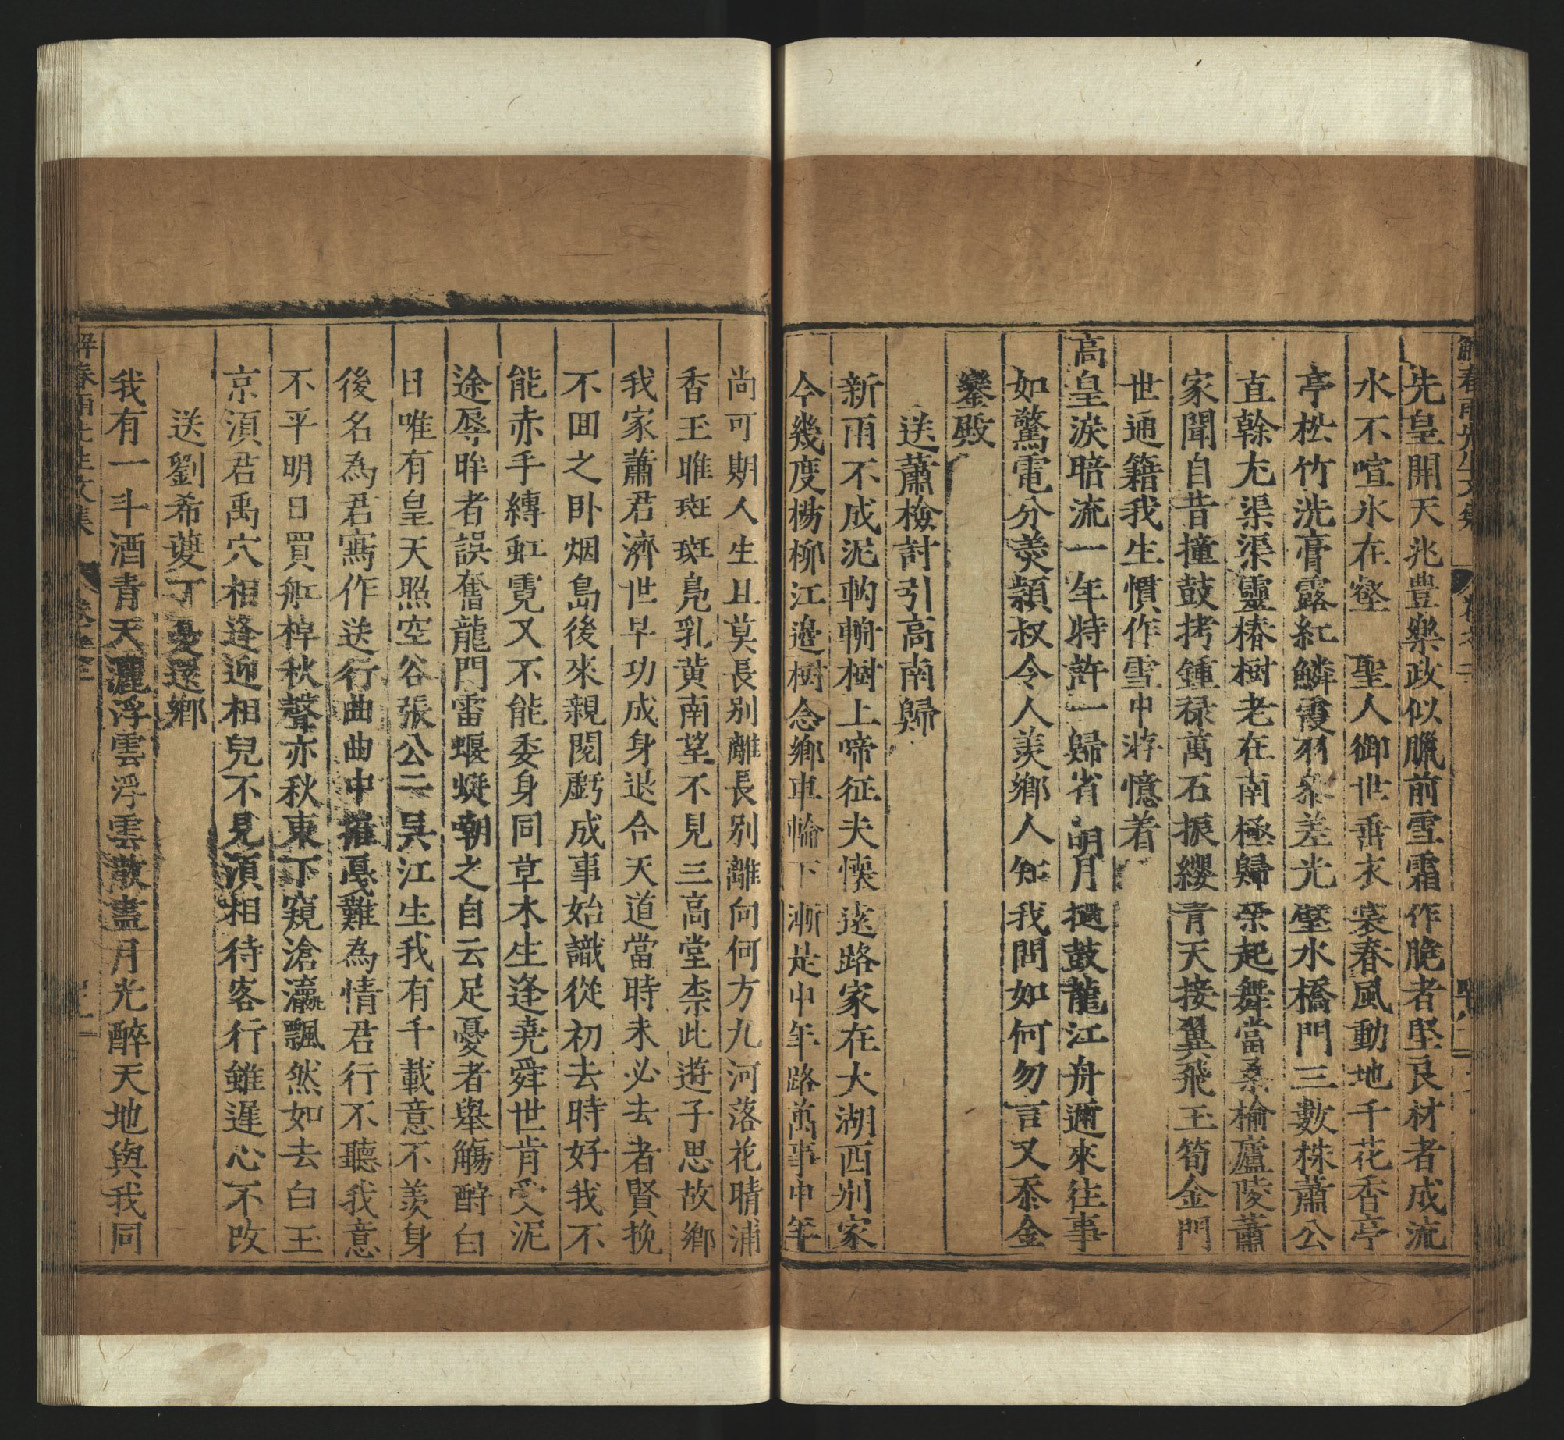 先皇開天兆豊樂政似臘前雪霜作脆者堅良材者成流
水不喧氷在壑　聖人御世垂衣裳春風動地千花香亭
亭松竹洗膏露紅鱗霞羽衆差光壁水橋門三數株蕭公
直幹尤渠渠靈椿樹老在南極歸榮起舞當桑榆廬陵蕭
家聞自昔撞鼓拷鍾祿萬石振纓青天接翼飛玉筍金門
世通籍我生慣作雪中游憶着
高皇淚暗流一年特許一歸省明月撾鼓龍江舟邇來往事
如驚電分羙頴叔令人羙鄉人知我問如何勿言又忝金
鑾殿
送蕭檢討引高南歸
新雨不成泥軥輈樹上啼征夫懷遠路家在大湖西別家
今幾度楊柳江邊樹念鄉車輪下漸是中年路萬事中年
尚可期人生且莫長別離長別離向何方九河落花晴浦
香玉雎斑斑鳧乳黄南望不見三高堂柰此遊子思故鄉
我家蕭君濟世早功成身退合天道當時未必去者賢挽
不囬之卧烟島後來親閱虧成事始識從初去時好我不
能赤手縛虹霓又不能委身同草木生逢堯舜世肯受泥
途辱眸者誤奮龍門雷蝘蜓嘲之自云足憂者舉觴酹白
日唯有皇天照空谷張公二吴江生我有千載意不羨身
後名為君寫作送行曲曲中摧戛難為情君行不聽我意
不平明日買舡棹秋聲亦秋東下窺滄瀛飄然如去白玉
京湏君禹穴相逢迎相兒不見湏相待客行雖遲心不改
送劉希夔丁憂還鄉
我有一斗酒青天灑浮雲浮雲散盡月光醉天地與我同